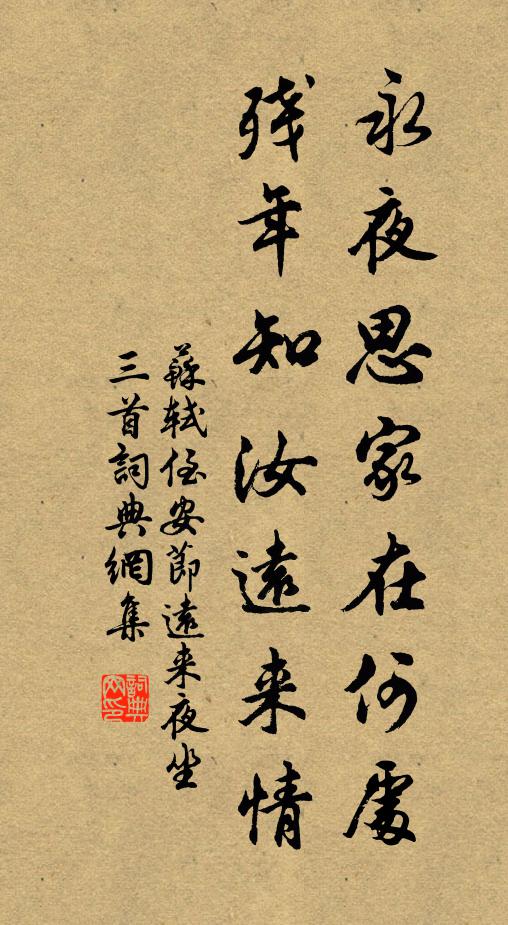 永夜思家在何處
残年知汝遠来情
蘇轼侄安節遠来夜坐
三首詞典網集
詞典網印